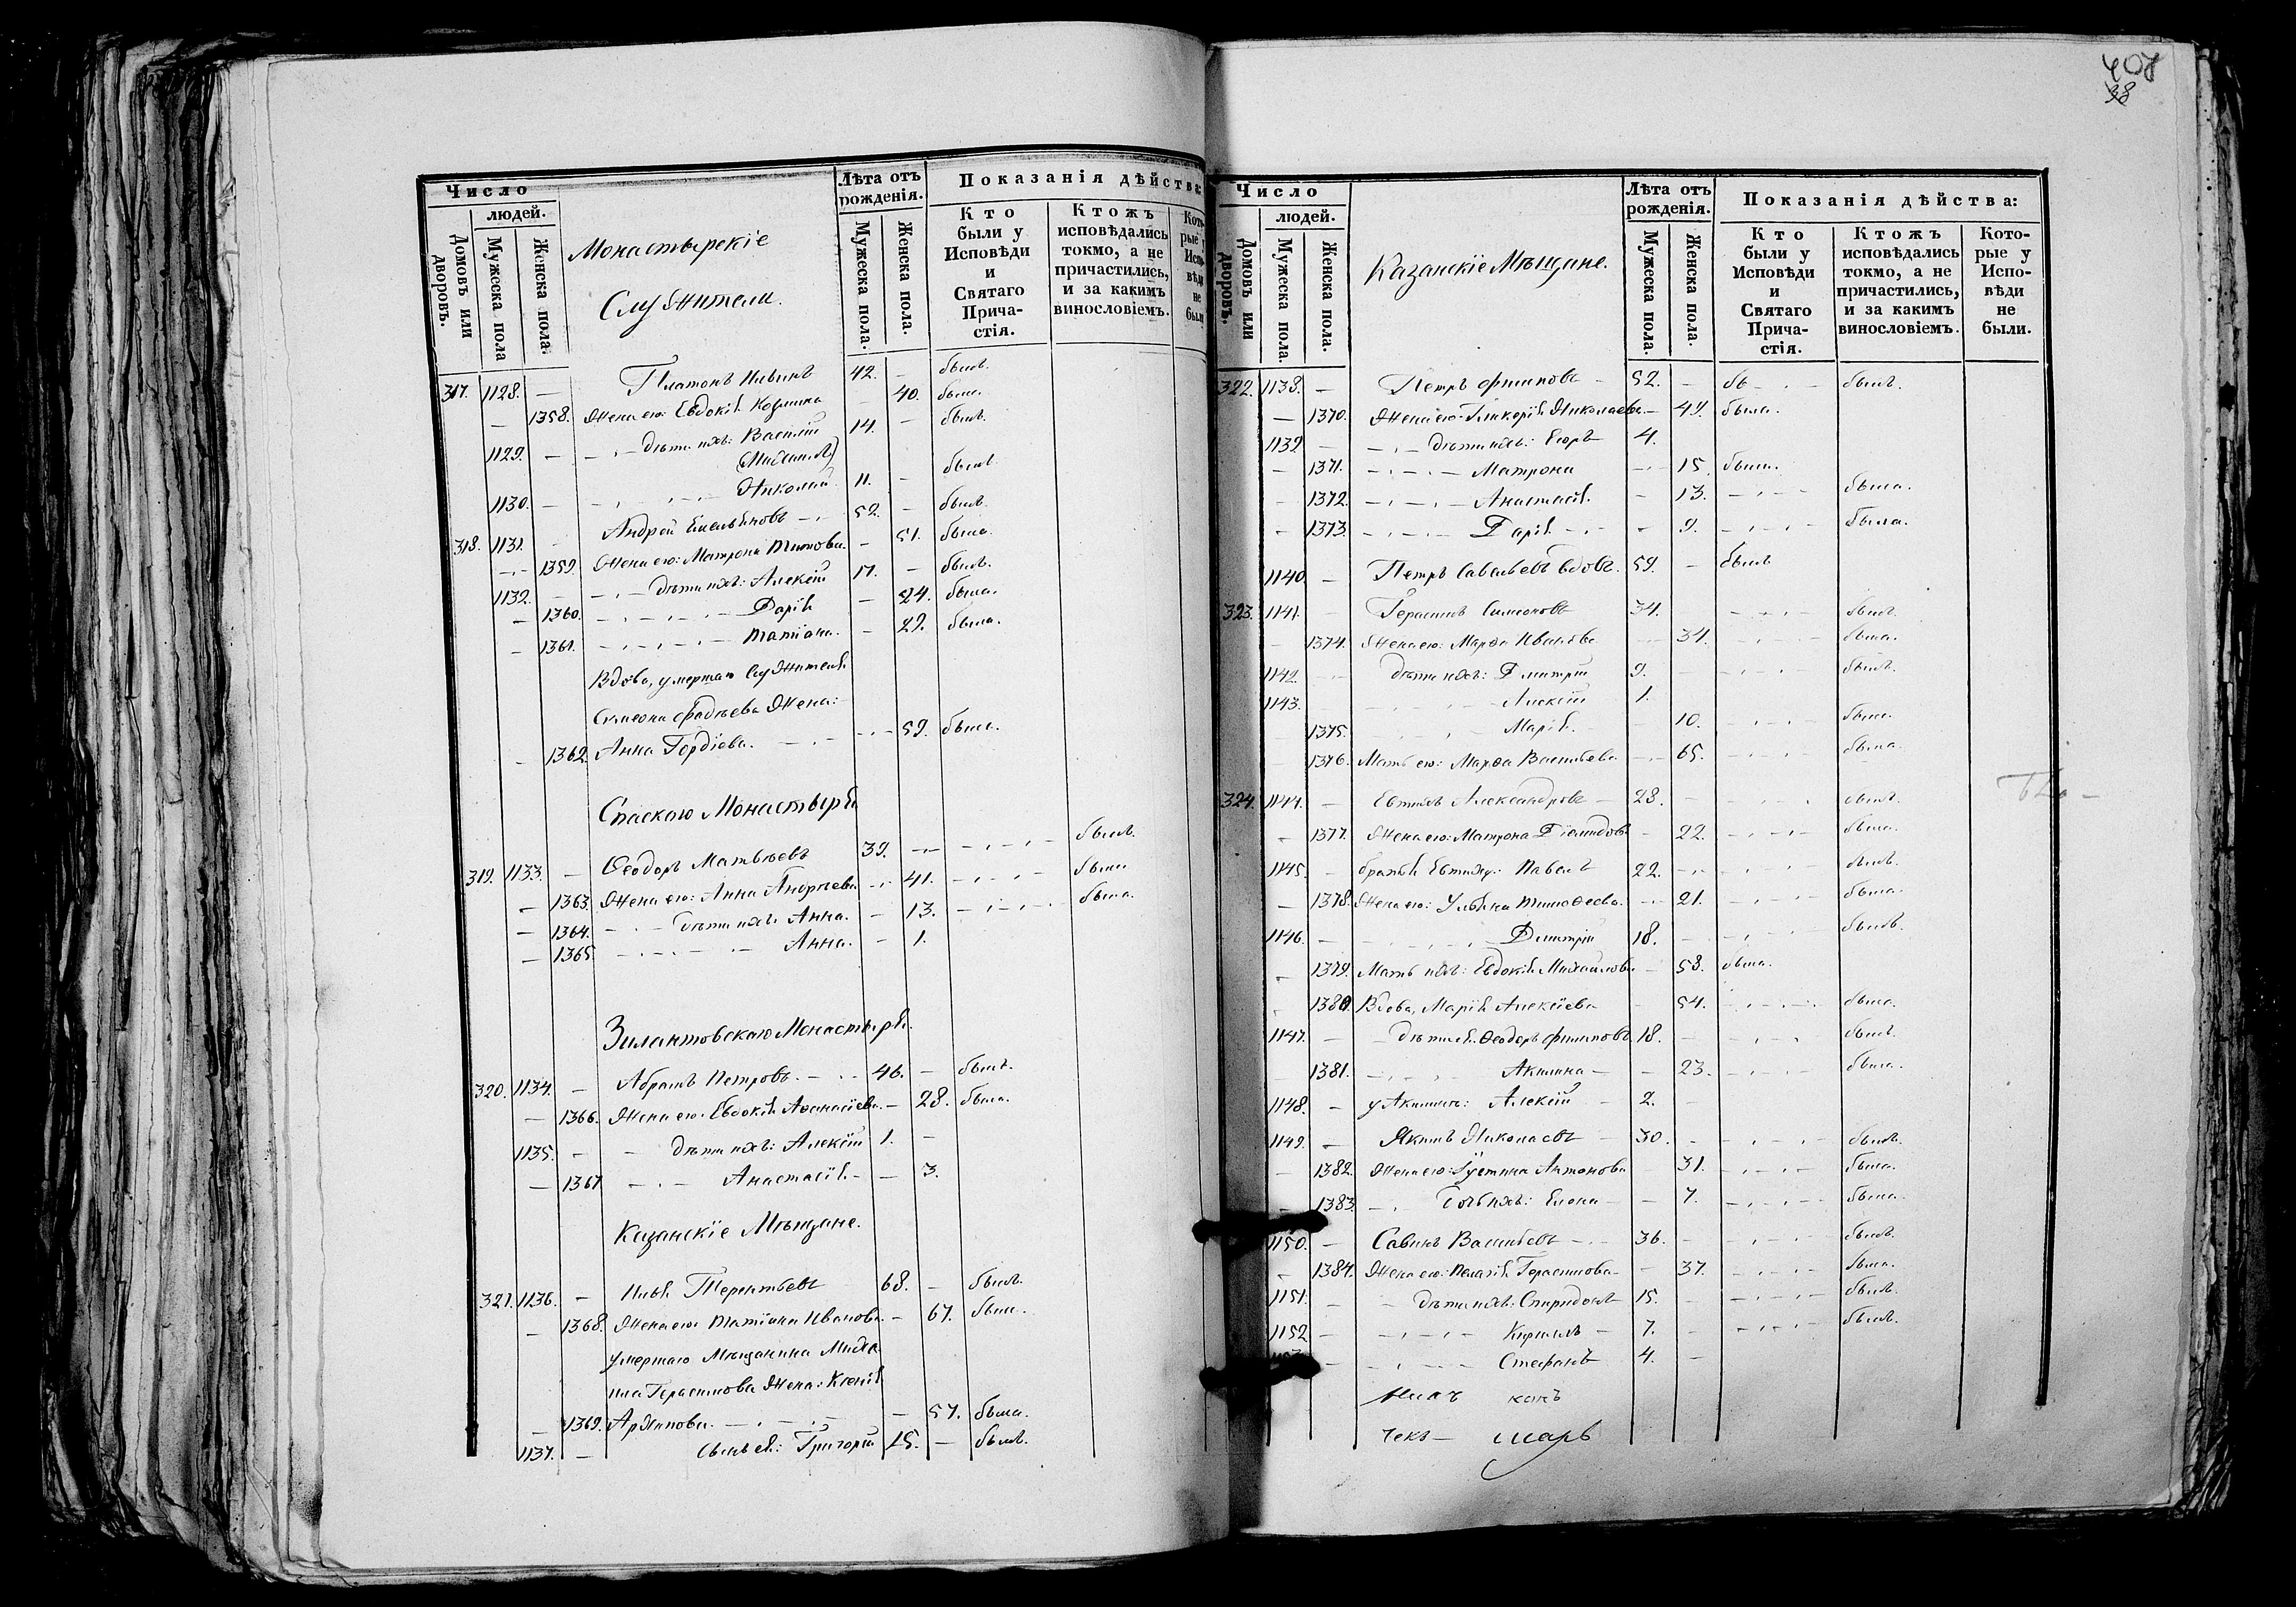 408
38
Число
людей.
Домовъ или дворовъ.
Мужеска пола
Женска пола.
Монастырскіе
Служители.
Лѣта отъ рожденія.
Мужеска пола.
Женска пола.
Показанія дѣйства:
Кто были у Исповѣди и Святаго Причастія.
Ктожъ исповѣдались токмо, а не причастились, и за какимъ винословіемъ.
Которые у Исповѣди не были
317. 1128. — Платонъ Ильинъ 42. — былъ.
— 1358. Жена его: Евдокія Козмина — 40. была.
1129. — — дѣти ихъ: Василій 14. — былъ.
(Михаилъ)
1130. — Николай 11. — былъ.
318. 1131. — Андрей Емельяновъ — 52. — былъ.
— 1359. Жена его: Матрона Титова. — 51. была.
1132. — — дѣти ихъ: Алексій 17. — былъ.
— 1360. — Дарія — 24. была.
— 1361. — Татіана. — 29. была.
Вдова, умершаго Служителя
Симеона Фадѣева Жена:
— 1362. Анна Гордіева. — — 59. была.
Спаскаго Монастыря
319. 1133. — Ѳеодоръ Матвѣевъ 39. — — былъ.
— 1363. Жена его: Анна Андреева — 41. — была
— 1364. — дѣти ихъ: Анна. — 13. — была.
— 1365. — Анна. — 1.
Зилантовскаго Монастыря.
320. 1134. — Абрамъ Петровъ. — 46. — былъ.
— 1366. Жена его: Евдокія Аѳанасіева — 28. была.
1135. — — дѣти ихъ: Алексій 1. —
— 1367 — Анастасія — — 3.
Казанскіе Мѣщане.
321. 1136. — Илья Терентьевъ 68. — былъ.
— 1368. Жена его Татіана Иванова. — 67. была.
умершаго Мѣщанина Миха
ила Герасимова Жена: Ксенія
— 1369. Архипова. — — 57. была.
1137. — Сынъ ея: Григорій 25. — былъ.
Число
людей.
Домовъ или дворовъ.
Мужеска пола.
Женска пола.
Казанскіе Мѣщане.
Лѣта отъ рожденія.
Мужеска пола.
Женска пола.
Показанія дѣйства:
Кто были у Исповѣди и Святаго Причастія.
Ктожъ исповѣдались токмо, а не причастились, и за какимъ винословіемъ.
Которые у Исповѣди не были.
322. 1138. — Петръ Филиповъ — 52. — бы — былъ.
— 1370. Жена его: Гликерія Николаева — 49. была.
1139 — — дѣти ихъ: Егоръ 4.
— 1371. — Матрона — 15. была.
— 1372. — Анастасія. — 13. — была.
— 1373. — Дарія — — 9. — была.
1140. — Петръ Савельевъ вдовъ. 59. — былъ
323. 1141. — Герасимъ Симеоновъ 34. — былъ.
— 1374. Жена его: Марѳа Иванова — 34. — была.
1142. — дѣти ихъ: Димитрій 9. — былъ.
1143. — Алексій 1.
1375. — Марія. 10. — была.
1376. Мать его: Марѳа Васильева — 65. — была.
324. 1144. — Евтихъ Александровъ — 28. — былъ.
— 1377. Жена его: Матрона Діомидова — 22. — была.
1145. — братья Евтиху: Павелъ 22. — былъ.
— 1378. Жена его: Ульяна Тимоѳеева. — 21. — была.
1146. — Димитрій 18. — былъ.
— 1379. Мать ихъ: Евдокія Михайлова — 58. была.
1380. Вдова, Марія Алексіева 54. — была.
1147. — дѣти ея: Ѳеодоръ Филиповъ. 18. — былъ.
1381. — Акилина — — 23. — была.
1148. — у Акилины: Алексій — 2. —
1149. — Якимъ Николаевъ — 30. — былъ.
— 1382. Жена его: Іустина Антонова 31. — была.
— 1383. — дочь ихъ: Елена — — 7. — была.
1150. — Савинъ Васильевъ — 36. — былъ.
— 1384. Жена его: Пелагія Герасимова — 37. — была.
1151. — — дѣти ихъ: Спиридонъ 15. — былъ.
1152 — — Кириллъ — 7. — былъ.
— Стефанъ 4. —